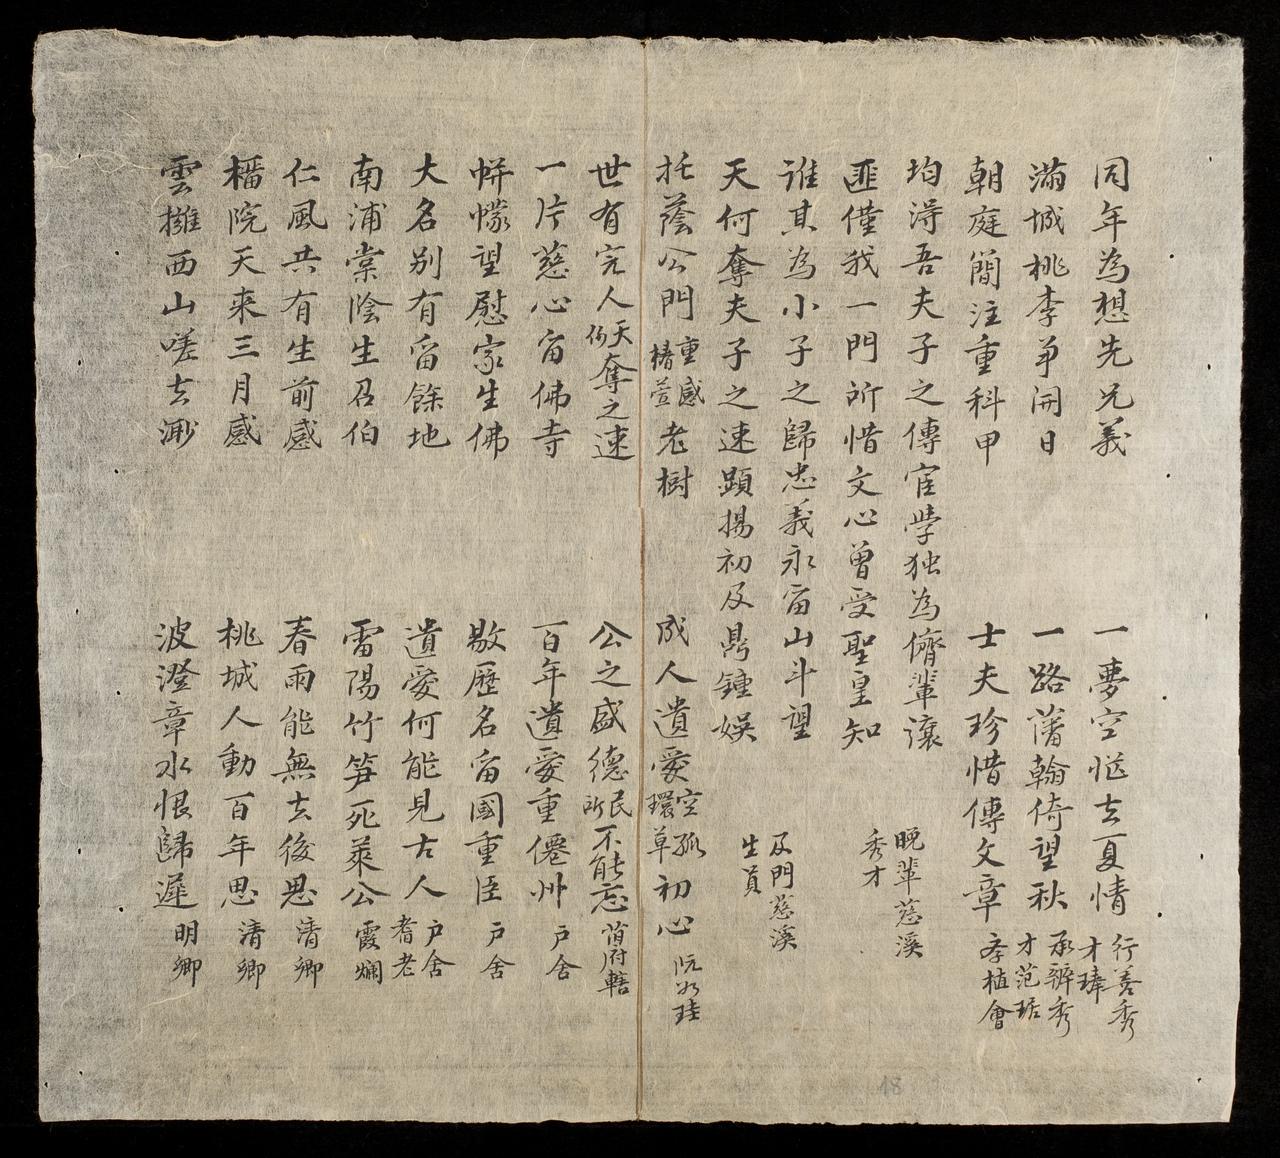 同年為想先兄義 一夢空怊去夏情 行善秀才璋
滿城桃李爭開日 一路藩翰倚望秋 承辦秀才范琚
朝庭簡注重科甲 士夫珍惜傳文章 李植會
均淂吾夫子之傳宦學独為儕輩讓 晚輩慈溪秀才
匪僅我一門所惜文心曾受聖皇知
誰其為小子之歸忠義永畱山斗望 及門慈溪生員
天何奪夫子之速顕揚初及鼎鍾娛
托蔭公門重感椿萱老樹 成人遺愛空孤環草初心 阮如珪
世有完人天何奪之速 公之盛德民所不能忘 首府轄
一片慈心畱佛寺 百年遺愛重僊州 户舍
帡幪望慰家生佛 敭歷名畱國重臣 户舍
大名别有畱餘地 遺愛何能見古人 户舍耆老
南浦棠陰生召伯 雷陽竹笋死萊公 霞爛
仁風共有生前感 春雨能無去後思 清卿
榗院天来三月感 桃城人動百年思 清卿
雲擁西山嗟去渺 波澄章水恨歸遲 明卿
18